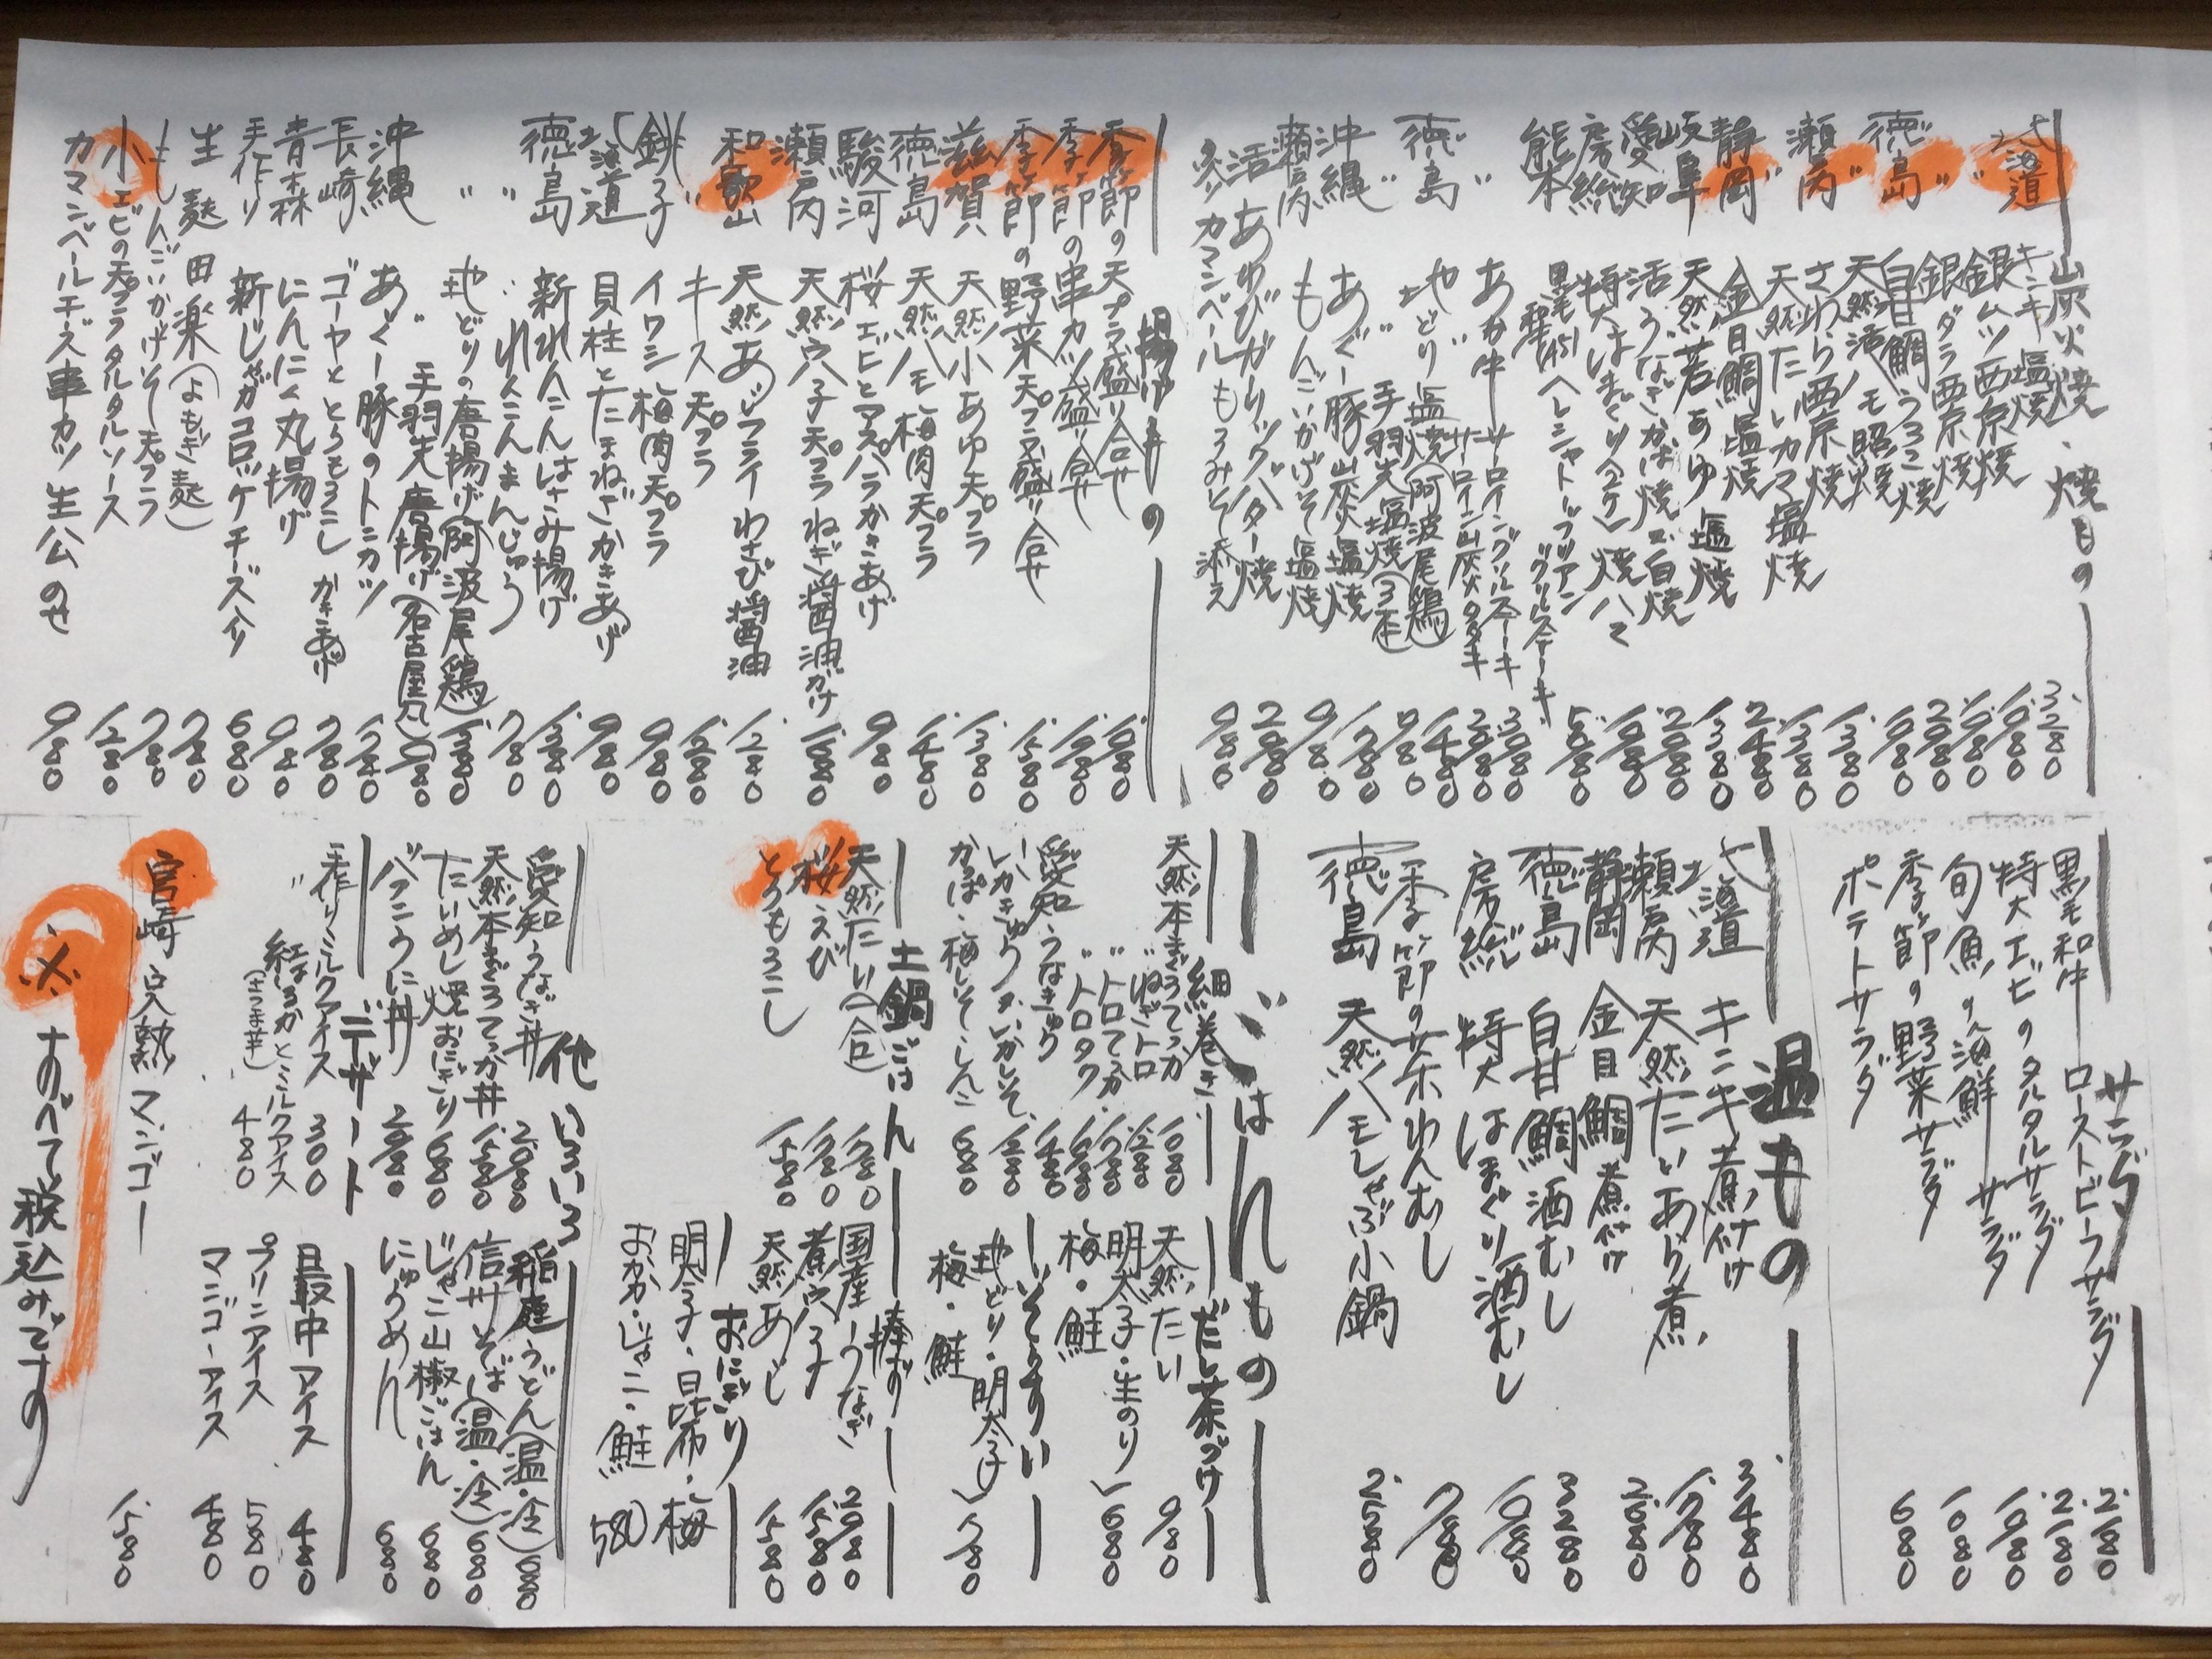 炭火焼・焼もの
北海道 キンキ塩焼 3.280
〃 銀ムツ西京焼 1.980
〃 銀ダラ西京焼 1.980
徳島 白甘鯛うろこ焼 2.980
〃 天然活ハモ照焼 1.980
瀬戸内 さわら西京焼 1.380
〃 天然たいカマ塩焼 1.380
静岡 金目鯛塩焼 2.480
岐阜 天然若あゆ塩焼 1.380
愛知 活うなぎかば焼又は白焼 2.980
房総 特大はまぐり(2ケ)焼ハマ 1.080
あか牛サーロイングリルステーキ 3.080
〃 サーロイン炭火タタキ 2.980
徳島 地どり塩焼(阿波尾鶏) 1.480
〃 〃 手羽先塩焼(3本) 980
沖縄 あぐー豚炭火塩焼 1.780
瀬戸内 もんごいかげそ塩焼 980
活あわびガーリックバター焼 2.980
炙りカマンベールもろみそ添え 980
揚げもの
季節の天プラ盛り合せ 1.980
季節の串カツ盛り合せ 1.980
季節の野菜天プラ盛り合せ 1.580
滋賀 天然小あゆ天プラ 1.380
徳島 天然ハモ梅肉天プラ 1.480
駿河 桜エビとアスパラかきあげ 980
瀬戸内 天然穴子天プラねぎ醤油がけ 1.680
和歌山 天然あじフライわさび醤油 1.280
〃 キス天プラ 1.280
銚子 イワシ梅肉天プラ 980
北海道 貝柱とたまねぎかきあげ 980
徳島 新れんこんはさみ揚げ 1.380
〃 れんこんまんじゅう 780
〃 地どりの唐揚げ(阿波尾鶏) 1.380
〃 手羽先唐揚げ(名古屋風) 980
沖縄 あぐー豚のトンカツ 1.780
長崎 ゴーヤととうもろこしかきあげ 780
青森 にんにく丸揚げ 980
手作り 新じゃがコロッケチーズ入り 680
生麩田楽(よもぎ麩) 780
もんごいかげそ天プラ 780
小エビの天プラタルタルソース 1.280
カマンベールチーズ串カツ生ハムのせ 980
サラダ
黒毛和牛ローストビーフサラダ 2.180
特大エビのタルタルサラダ 2.180
旬魚の海鮮サラダ 1.980
季節の野菜サラダ 1.080
ポテトサラダ 680
温もの
北海道 キンキ煮付け 3.480
瀬戸内 天然たいあり煮 1.780
静岡 金目鯛煮付け 2.680
徳島 白甘鯛酒むし 3.280
房総 特大はまぐり酒むし 1.080
季節の茶わんむし 780
徳島 天然ハモしゃぶ小鍋 2.580
ごはんもの
細巻き
天然本まぐろてっか 1.080
〃 ねぎトロ 1.280
〃 トロてっか 1.780
〃 トロタク 1.680
愛知うなきゅう 1.480
いかきゅう・いかしそ 1.280
かっぱ・梅しそ・しんこ 680
だし茶づけ
天然たい 980
明太子・生のり
梅・鮭 680
ぞうすい
地どり・明太子
梅・鮭 780
土鍋ごはん
天然たい(一合) 1.780
桜えび 1.780
とうもろこし 1.580
棒ずし
国産うなぎ 2.980
煮穴子 1.580
天然あじ 1.580
おにぎり
明太子・昆布・梅
おかか・じゃこ・鮭 580
他いろいろ
愛知うなぎ丼 2.980
天然本まぐろてっか丼 1.580
たいめし焼おにぎり 680
バフンうに丼 2.980
稲庭うどん(温・冷) 680
信州そば(温・冷) 680
じゃこ山椒ごはん 680
にゅうめん 680
デザート
手作りミルクアイス 300
〃 紅はるかとミルクアイス
(さつま芋) 480
最中アイス 480
プリンアイス 580
マンゴーアイス 480
宮崎 完熟マンゴー 1.580
※すべて税込みです